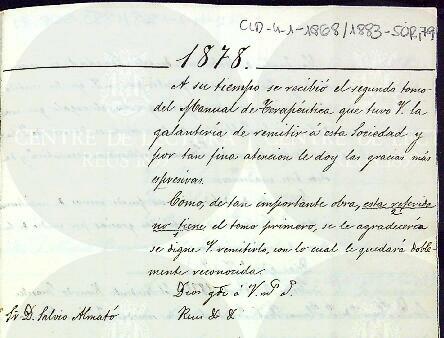 CLD-4-1-1868/1883-SOR,79
1878.
A su tiempo se recibió el segundo tomo
del Manual de Terapéutica que tuvo V. la
galantería de remitir á esta Sociedad y
por tan fina atencion le doy las gracias más
espresivas.
Como, de tan importante obra, esta referida
no tiene el tomo primero, se le agradecería
se digne V. remitirlo, con lo cual le quedará doble-
mente reconocida.
Dios gde á V. ms As.
Sr. D. Salvio Almató
Reus & &
CENTRE DE
REUS